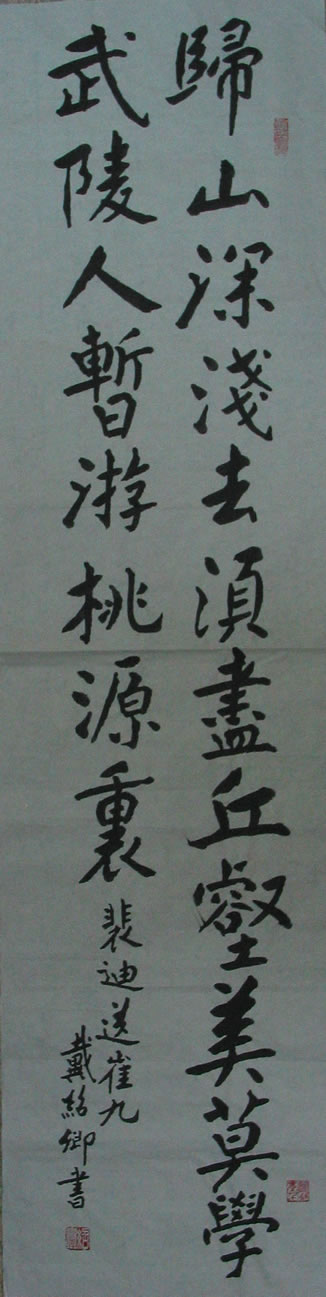 歸山深淺去須盡丘壑美莫學
武陵人暫游桃源裏
裴迪送崔九
戴紹卿書